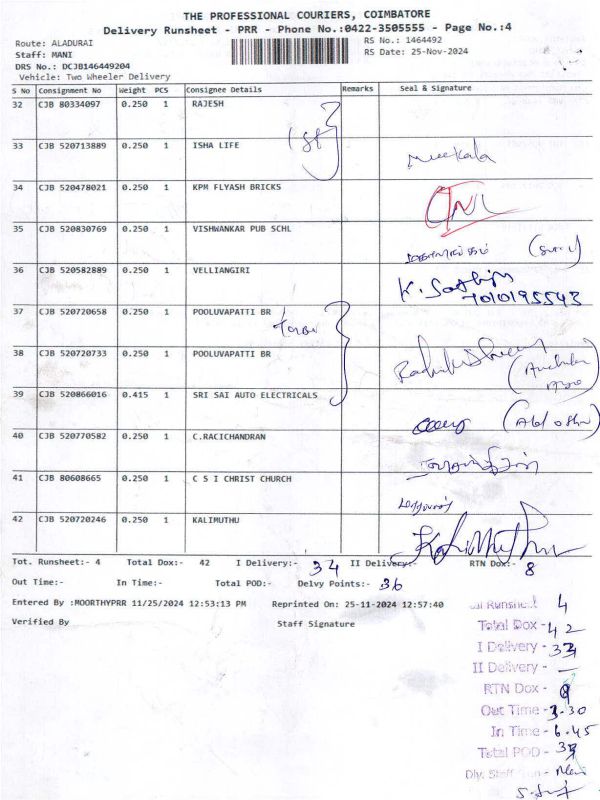 THE PROFESSIONAL COURIERS, COIMBATORE
Delivery Runsheet - PRR - Phone No.:0422-3505555 - Page No.:4
Route: ALADURAI
RS No.: 1464492
Staff: MANI
RS Date: 25-Nov-2024
DRS No.: DCJB146449204
Vehicle: Two Wheeler Delivery
S No Consignment No Weight PCS Consignee Details Remarks Seal & Signature
32 CJB 80334097 0.250 1 RAJESH
33 CJB 520713889 0.250 1 ISHA LIFE
34 CJB 520478021 0.250 1 KPM FLYASH BRICKS
35 CJB 520830769 0.250 1 VISHWANKAR PUB SCHL
36 CJB 520582889 0.250 1 VELLIANGIRI
7010195543
37 CJB 520720658 0.250 1 POOLUVAPATTI BR
38 CJB 520720733 0.250 1 POOLUVAPATTI BR
39 CJB 520866016 0.415 1 SRI SAI AUTO ELECTRICALS
40 CJB 520770582 0.250 1 C.RACICHANDRAN
41 CJB 80608665 0.250 1 C S I CHRIST CHURCH
42 CJB 520720246 0.250 1 KALIMUTHU
Tot. Runsheet:- 4 Total Dox:- 42 I Delivery:- 34 II Delivery:- RTN Dox:- 8
Out Time:- In Time:- Total POD:- Delvy Points:- 36
Entered By :MOORTHYPRR 11/25/2024 12:53:13 PM Reprinted On: 25-11-2024 12:57:40
Verified By Staff Signature
Runsheet 4
Total Dox - 42
I Delivery -
II Delivery - —
RTN Dox -
Out Time - 3.30
In Time - 6.45
Total POD -